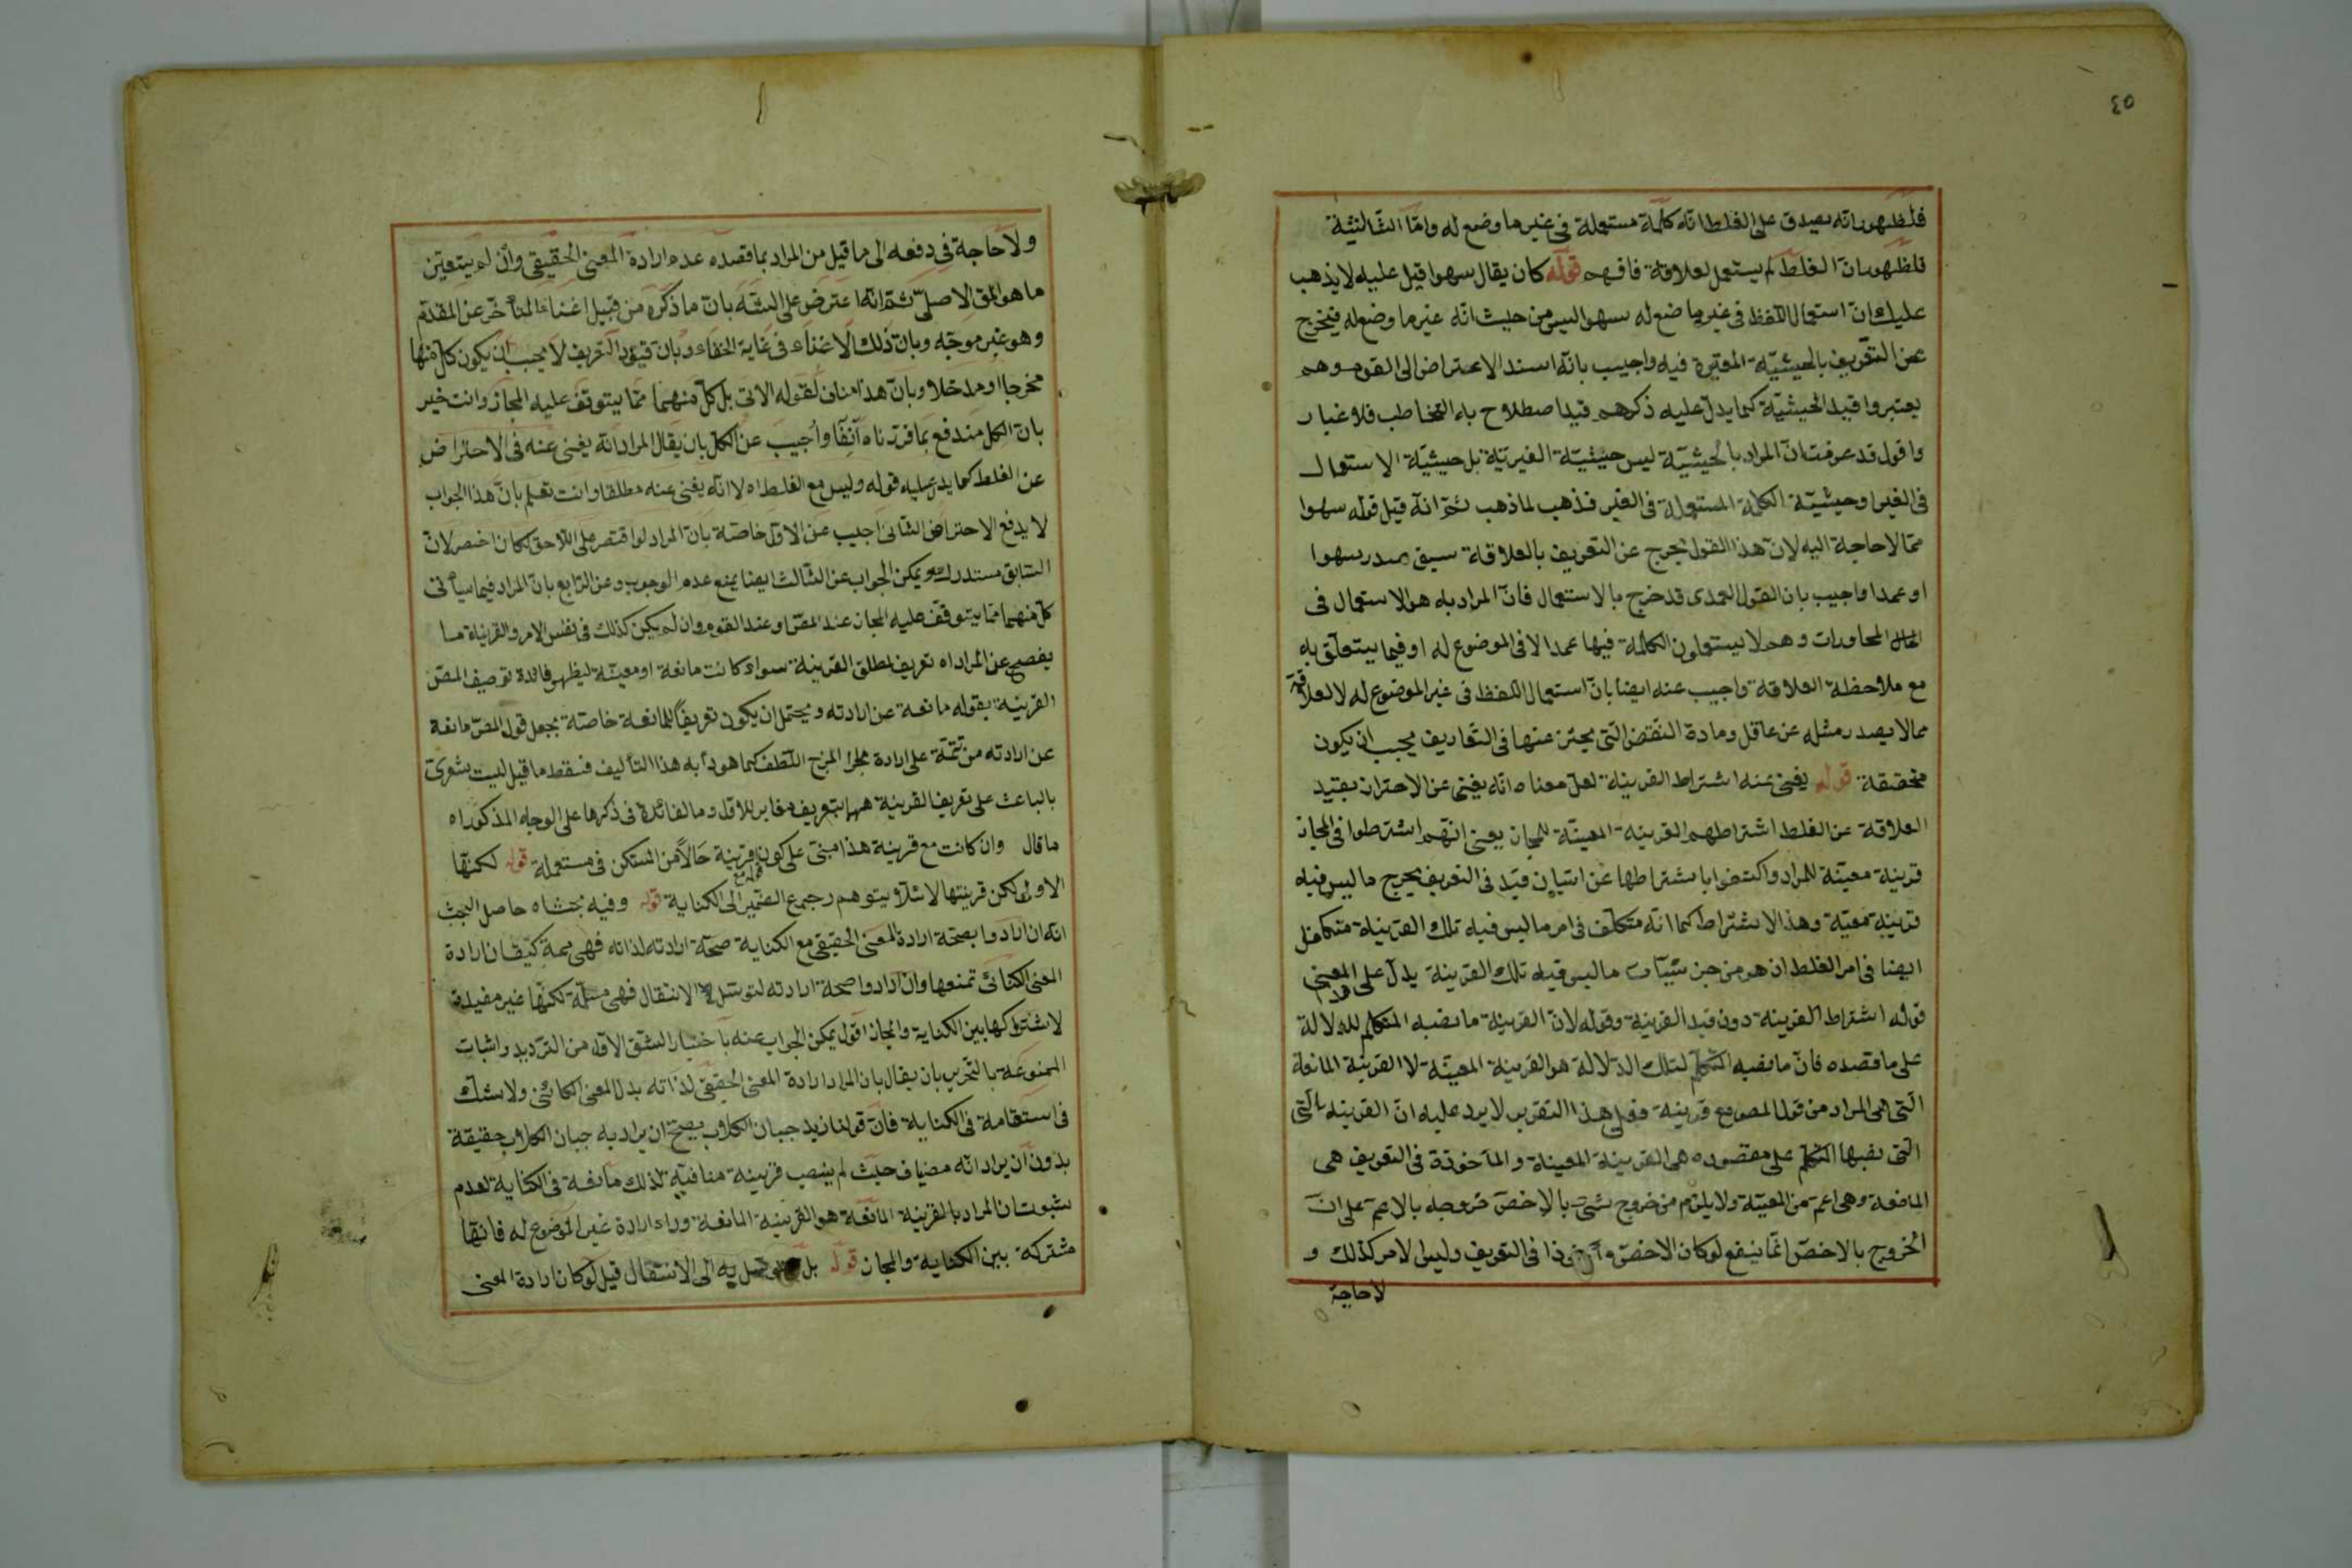 ٤٥
فلظهور انه يصدق على الغلط انه كلمة مستعملة في غير ما وضع له واما الثانية
فلظهور ان الغلط لم يستعمل لعلاقة فافهم قوله كان يقال سهوا قيل عليه لا يذهب
عليك ان استعمال اللفظ في غير ما ضع له سهوا ليس من حيث انه غير ما وضع له فيخرج
عن التعريف بالحيثية المعتبرة فيه واجيب بانه اسند الاعتراض الى القوم وهم
يعتبروا قيد الحيثية كما يدل عليه ذكرهم قيد اصطلاح باء التخاطب فلا غبار
واقول قد عرفت ان المراد بالحيثية ليس حيثية الغيرية بل حيثية الاستعمال
في الغير او حيثية الكلمة المستعملة في الغير فذهب لما ذهب ثم انه قيل قوله سهوا
مما لا حاجة اليه لان هذا القول يخرج عن التعريف بالعلاقة سيق صدر سهوا
او عمدا واجيب بان القول العمدى قد خرج بالاستعمال فان المراد به هو الاستعمال في
المحاورات وهم لا يستعملون الكلمة فيها عمدا لا في الموضوع له او فيما يتعلق به
مع ملاحظة العلاقة واجيب عنه ايضا بان استعمال اللفظ في غير الموضوع له لا لعلاقة
مما لا يصدر مثله عن عاقل ومادة النقض التي يحترز عنها في التعاريف يجب ان يكون
متحققة قوله يغني عنه اشتراط القرينة لعل معناه انه يغني عن الاحتراز بقيد
العلاقة عن الغلط اشتراطهم القرينة المعينة للمجاز يعني انهم اشترطوا في المجاز
قرينة معينة للمراد واكتفوا باشتراطها عن اتيان قيد في التعريف يخرج ما ليس فيه
قرينة معينة وهذا الاشتراط كما انه متكفل في امر ما ليس فيه تلك القرينة متكفل
ايضا في امر الغلط اذ هو من جزئيات ما ليس فيه تلك القرينة يدل على المعنى
قوله اشتراط القرينة دون قيد القرينة وقوله لان القرينة ما نصبه المتكلم للدلالة
على ما قصده فان ما نصبه المتكلم لتلك الدلالة هو القرينة المعينة لا القرينة المانعة
التي هي المراد من قول المص مع قرينة فعلى هذا التقرير لا يرد عليه ان القرينة التي
التي نصبها المتكلم على مقصوده هي القرينة المعينة والماخوذة في التعريف هي
المانعة وهي اعم من المعينة ولا يلزم من خروج شيء بالاخص خروجه بالاعم على ان
الخروج بالاخص انما ينفع لو كان الاخص ماخوذا في التعريف وليس الامر كذلك و
لا حاجة
ولا حاجة في دفعه الى ما قيل من المراد بما قصده عدم ارادة المعنى الحقيقي وان لم يتعين
ما هو المق الاصلي ثم انه اعترض على الشق بان ما ذكره من قبيل اغناء المتأخر عن المقدم
وهو غير موجه وبان ذلك الاغناء في غاية الخفاء وبان قيود التعريف لا يجب ان يكون كل منها
مخرجا او مدخلا وبان هذا مناف لقوله الاتي بل كل منهما مما يتوقف عليه المجاز وانت خبير
بان الكل مندفع بما قررناه آنفا واجيب عن الكل بان يقال المراد انه يغني عنه في الاحتراض
عن الغلط كما يدل عليه قوله وليس مع الغلط اه لا انه يغني عنه مطلقا وانت تعلم بان هذا الجواب
لا يدفع الاحتراض الثاني اجيب عن الاول خاصة بان المراد لو اقتصر على اللاحق لكان اخصر لان
السابق مستدرك ويمكن الجواب عن الثالث ايضا بمنع عدم الوجوب وعن الرابع بان المراد فيما سيأتي
كل منهما مما يتوقف عليه المجاز عند المص او عند القوم وان لم يكن كذلك في نفس الامر والقرينة ما
يفصح عن المراد اه تعريف لمطلق القرينة سواء كانت مانعة او معينة ليظهر فائدة توصيف المص
القرينة بقوله مانعة عن ارادته ويحتمل ان يكون تعريفا للمانعة خاصة بجعل قول المص مانعة
عن ارادته من تتمة على ارادة المزج اللطف كما هو دأبه هذا التأليف فسقط ما قيل ليت شعرى
بالباعث على تعريف القرينة ههنا بتعريف مغاير للاول وما الفائدة في ذكرها على الوجه المذكور اه
ما قال وان كانت مع قرينة هذا مبني على كون مع قرينة حالا من المستكن في مستعملة قوله لكنها
الاولى لكن قرينتها لا لئلا يتوهم رجوع الضمير الى الكناية قوله وفيه بحث اه حاصل البحث
انه ان ارادوا بصحة ارادة المعنى الحقيقي مع الكناية صحة ارادته لذاته فهي كيف ان ارادة
المعنى الكنائي تمنعها وان ارادوا صحة ارادته لتوسل الانتقال فهي مسلمة لكنها غير مفيدة
لاشتراكها بين الكناية والمجاز اقول يمكن الجواب عنه باختيار الشق الاول من الترديد واثبات
الممنوعة بالتحرير بان يقال بان المراد ارادة المعنى الحقيقي لذاته بدل المعنى الكنائي ولا شك
في استقامة في الكناية فان قولنا زيد جبان الكلاب يصح ان يراد به جبان الكلاب حقيقة
بدون ان يراد انه مضياف حيث لم ينصب قرينة منافية لذلك مانعة في الكناية لعدم
ثبوت ان المراد بالقرينة المانعة هو القرينة المانعة وراء ارادة غير الموضوع له فانها
مشتركة بين الكناية والمجاز قوله بل به الى الانتقال قيل لو كان ارادة المعنى